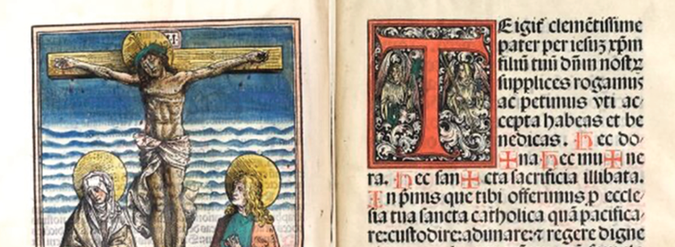 T
E igit̉ clemẽtissime
pater per iesuȝ xp̃m
filiũ tuũ dñm nostrȝ
supplices rogamus
ac petimus vti ac
cepta habeas et be
nedicas. Hec do
✠ na Hec mu ✠ ne
ra. Hec san ✠ cta sacrificia illibata.
In p̃mis que tibi offerimus p eccle
sia tua sancta catholica quã pacifica
re: custodire: adunare: ⁊ regere digne